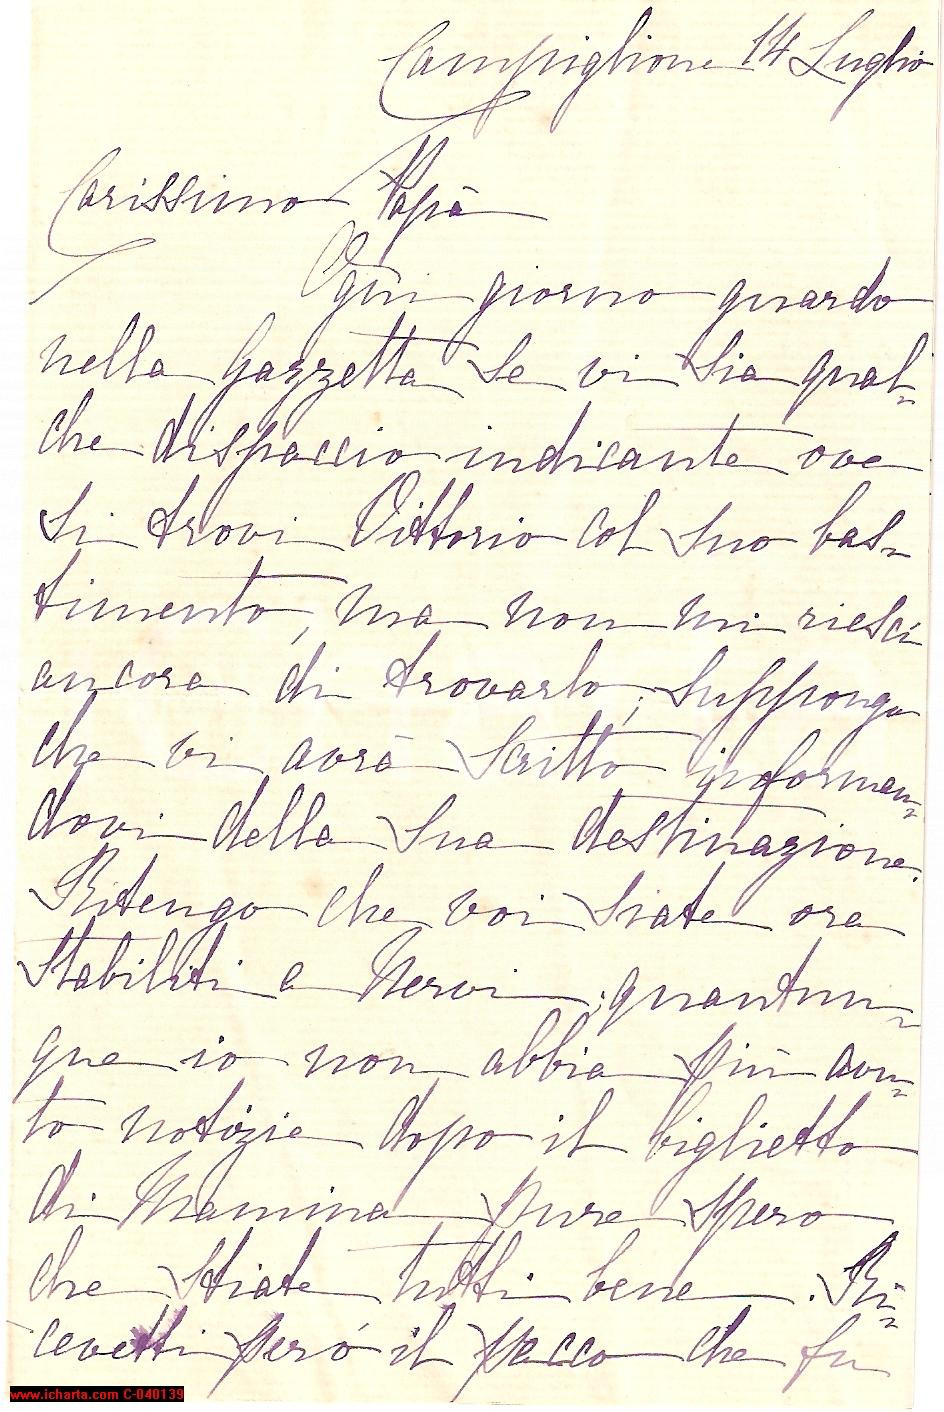 Campiglione 14 Luglio
Carissimo Papà
Ogni giorno guardo
nella Gazzetta se vi sia qual-
che dispaccio indicante ove
si trovi Vittorio col suo bas-
timento, ma non mi riescì
ancora di trovarlo; suppongo
che vi avrà scritto informan-
dovi della sua destinazione.
Ritengo che voi siate ora
stabiliti a Nervi; quantun-
que io non abbia più avu-
to notizie dopo il biglietto
di Mamina pure spero
che stiate tutti bene. Ri-
cevetti però il pacco che fu
www.icharta.com C-040139